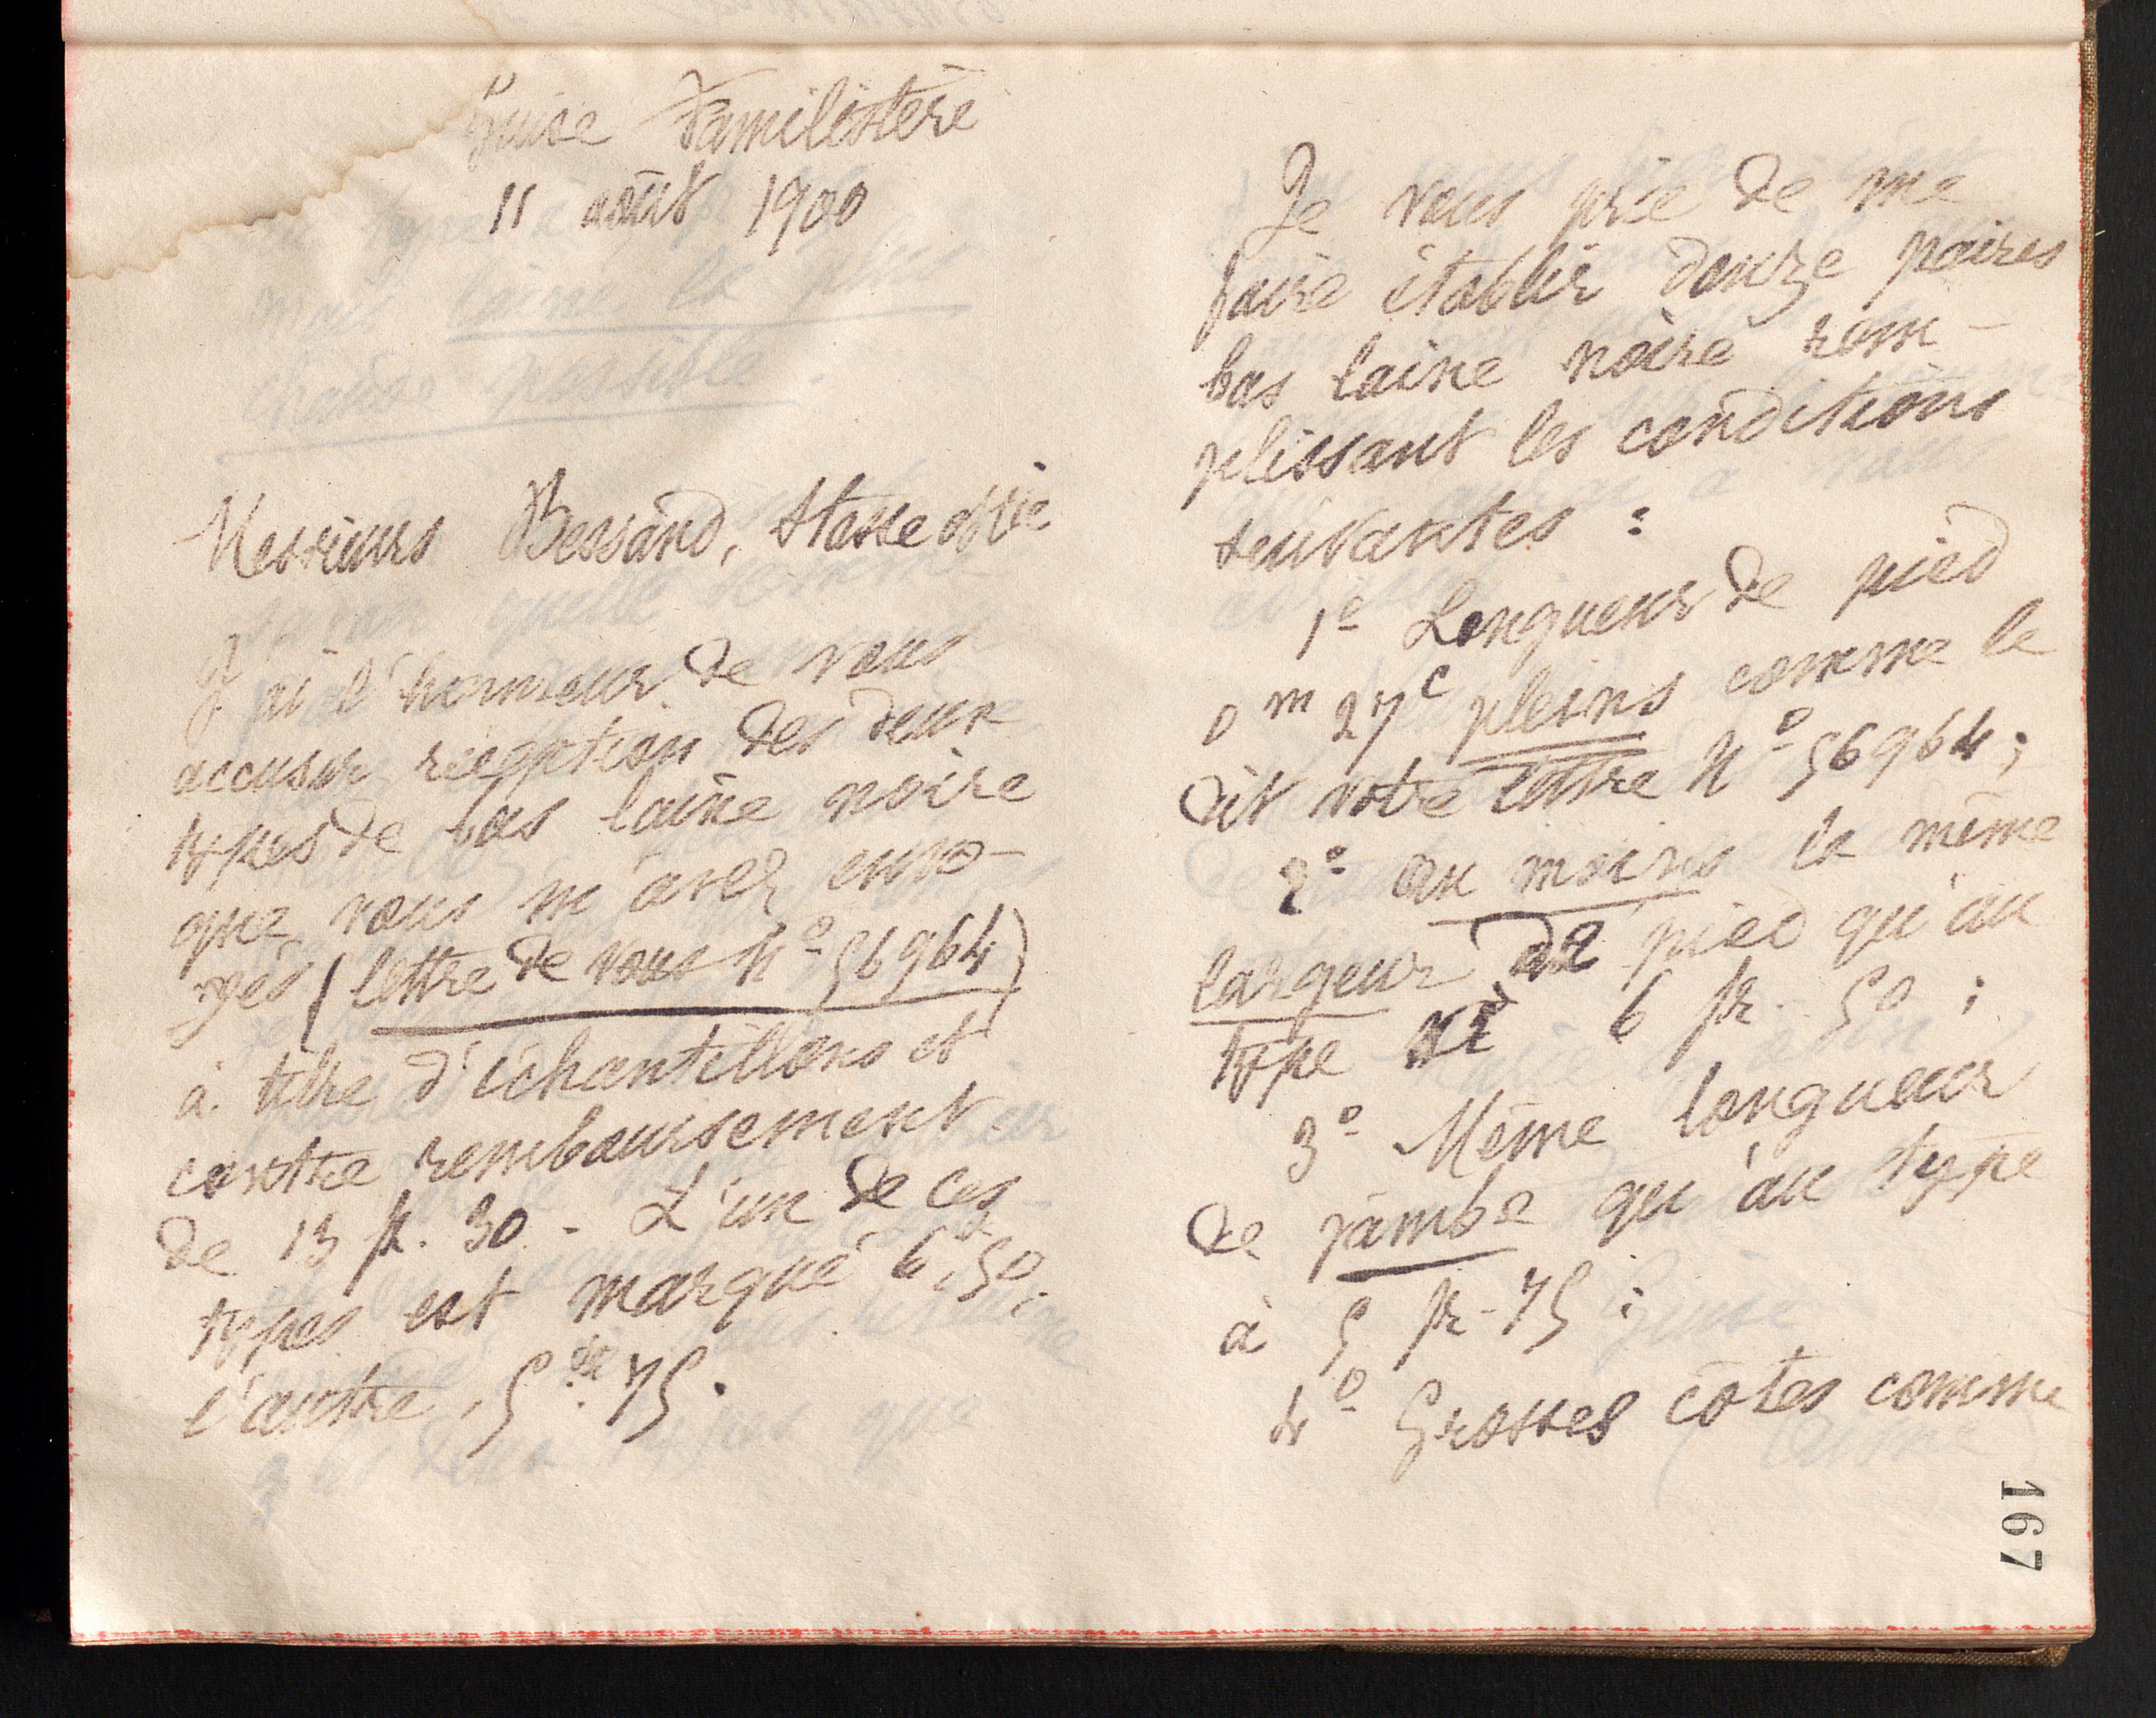 Guise Familistère
11 août 1900
Messieurs Bessand, Stasse & Cie
J'ai l'honneur de vous
accuser réception des deux
types de bas laine noire
que vous m'avez envo-
yés (lettre de vous No 56964)
à titre d'échantillons et
contre remboursement
de 13 fr. 30 - L'un de ces
types est marqué 6,50,
l'autre, 5 fr 75.
Je vous prie de me
faire établir douze paires
bas laine noire rem-
plissant les conditions
suivantes :
1o Longueur de pied
0 m 27 c pleins comme le
dit votre lettre No 56964 ;
2o au moins la même
largeur de pied qu'au
type à 6 fr. 50 ;
3o Même longueur
de jambe qu'au type
à 5 fr - 75 ;
4o Grosses côtes comme
167